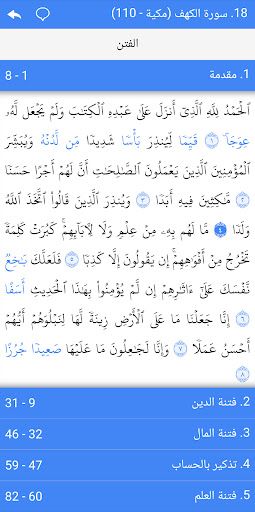 18. سورة الكهف (مكية - 110)
الفتن
1. مقدمة 1 - 8
ٱلْحَمْدُ لِلَّهِ ٱلَّذِىٓ أَنزَلَ عَلَىٰ عَبْدِهِ ٱلْكِتَٰبَ وَلَمْ يَجْعَل لَّهُۥ
عِوَجَاۜ ١ قَيِّمًا لِّيُنذِرَ بَأْسًا شَدِيدًا مِّن لَّدُنْهُ وَيُبَشِّرَ
ٱلْمُؤْمِنِينَ ٱلَّذِينَ يَعْمَلُونَ ٱلصَّٰلِحَٰتِ أَنَّ لَهُمْ أَجْرًا حَسَنًا
٢ مَّٰكِثِينَ فِيهِ أَبَدًا ٣ وَيُنذِرَ ٱلَّذِينَ قَالُوا۟ ٱتَّخَذَ ٱللَّهُ
وَلَدًا ٤ مَّا لَهُم بِهِۦ مِنْ عِلْمٍ وَلَا لِـَٔابَآئِهِمْ ۚ كَبُرَتْ كَلِمَةً
تَخْرُجُ مِنْ أَفْوَٰهِهِمْ ۚ إِن يَقُولُونَ إِلَّا كَذِبًا ٥ فَلَعَلَّكَ بَٰخِعٌ
نَّفْسَكَ عَلَىٰٓ ءَاثَٰرِهِمْ إِن لَّمْ يُؤْمِنُوا۟ بِهَٰذَا ٱلْحَدِيثِ أَسَفًا
٦ إِنَّا جَعَلْنَا مَا عَلَى ٱلْأَرْضِ زِينَةً لَّهَا لِنَبْلُوَهُمْ أَيُّهُمْ
أَحْسَنُ عَمَلًا ٧ وَإِنَّا لَجَٰعِلُونَ مَا عَلَيْهَا صَعِيدًا جُرُزًا
٨
2. فتنة الدين 9 - 31
3. فتنة المال 32 - 46
4. تذكير بالحساب 47 - 59
5. فتنة العلم 60 - 82